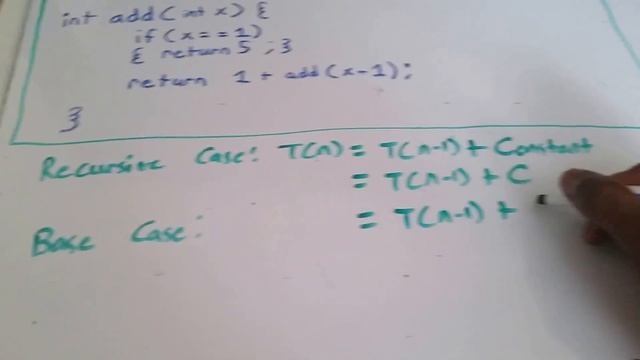 int add(int x) {
if(x == 1)
{ return 5; }
return 1 + add(x-1);
}
Recursive Case: T(n) = T(n-1) + Constant
= T(n-1) + C
Base Case: = T(n-1) +